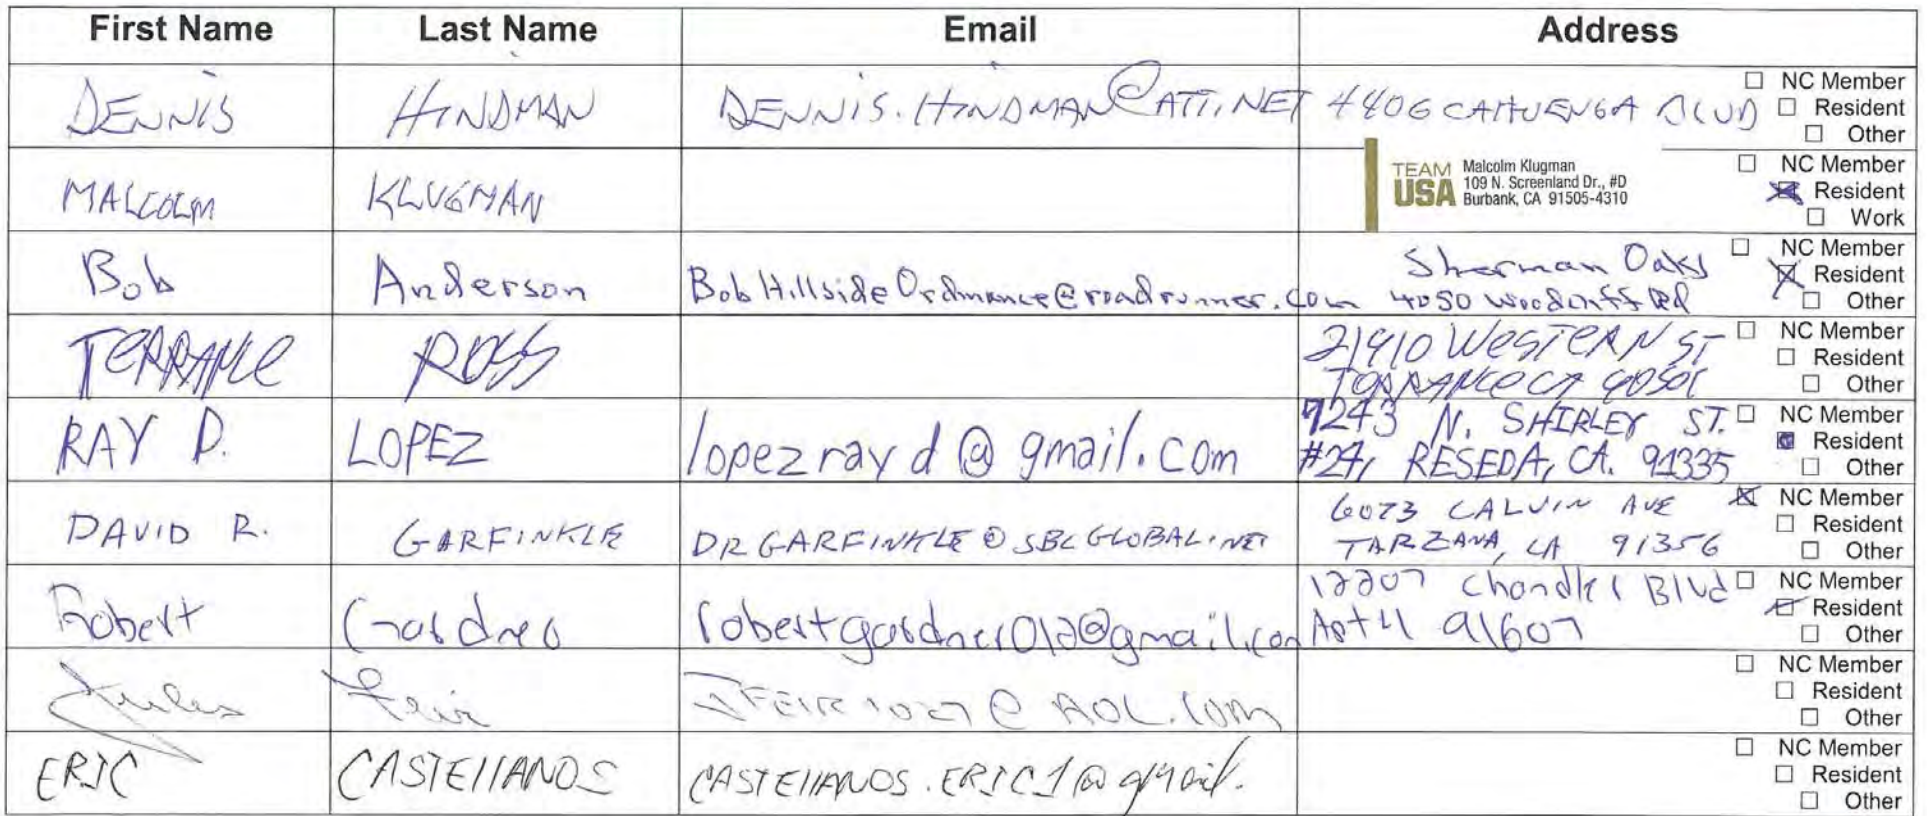 First Name Last Name Email Address
DENNIS HINDMAN DENNIS.HINDMAN@ATT.NET 4406 CAHUENGA BLVD
NC Member
Resident
Other
MALCOLM KLUGMAN
TEAM USA
Malcolm Klugman
109 N. Screenland Dr., #D
Burbank, CA 91505-4310
NC Member
Resident
Work
Bob Anderson BobHillsideOrdinance@roadrunner.com
Sherman Oaks
4050 Woodcliff Rd
NC Member
Resident
Other
TERRANCE ROSS
21910 WESTERN ST
TORRANCE CA 90501
NC Member
Resident
Other
RAY D. LOPEZ lopezrayd@gmail.com
7243 N. SHIRLEY ST.
#24, RESEDA, CA. 91335
NC Member
Resident
Other
DAVID R. GARFINKLE DRGARFINKLE@SBCGLOBAL.NET
6073 CALVIN AVE
TARZANA, CA 91356
NC Member
Resident
Other
Robert Gardner robertgardner012@gmail.com
12207 Chandler Blvd
Apt 4 91607
NC Member
Resident
Other
Jules Feir JFEIR1027@AOL.COM
NC Member
Resident
Other
ERIC CASTEllANOS CASTEllANOS.ERIC1@gmail.
NC Member
Resident
Other